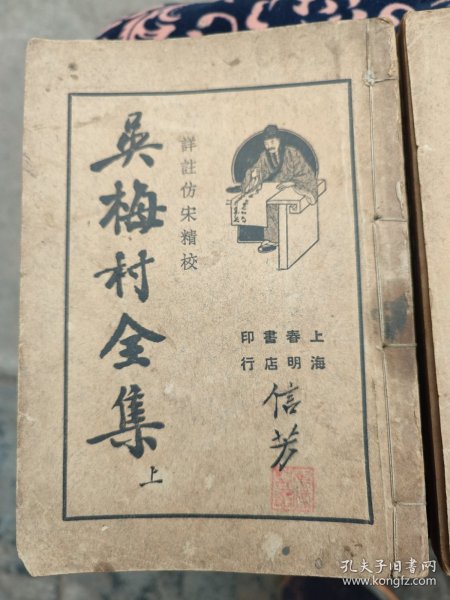 吳梅村全集
上
詳註仿宋精校
上海
春明
書店
印行
信芳
孔夫子旧书网
www.kongfz.com